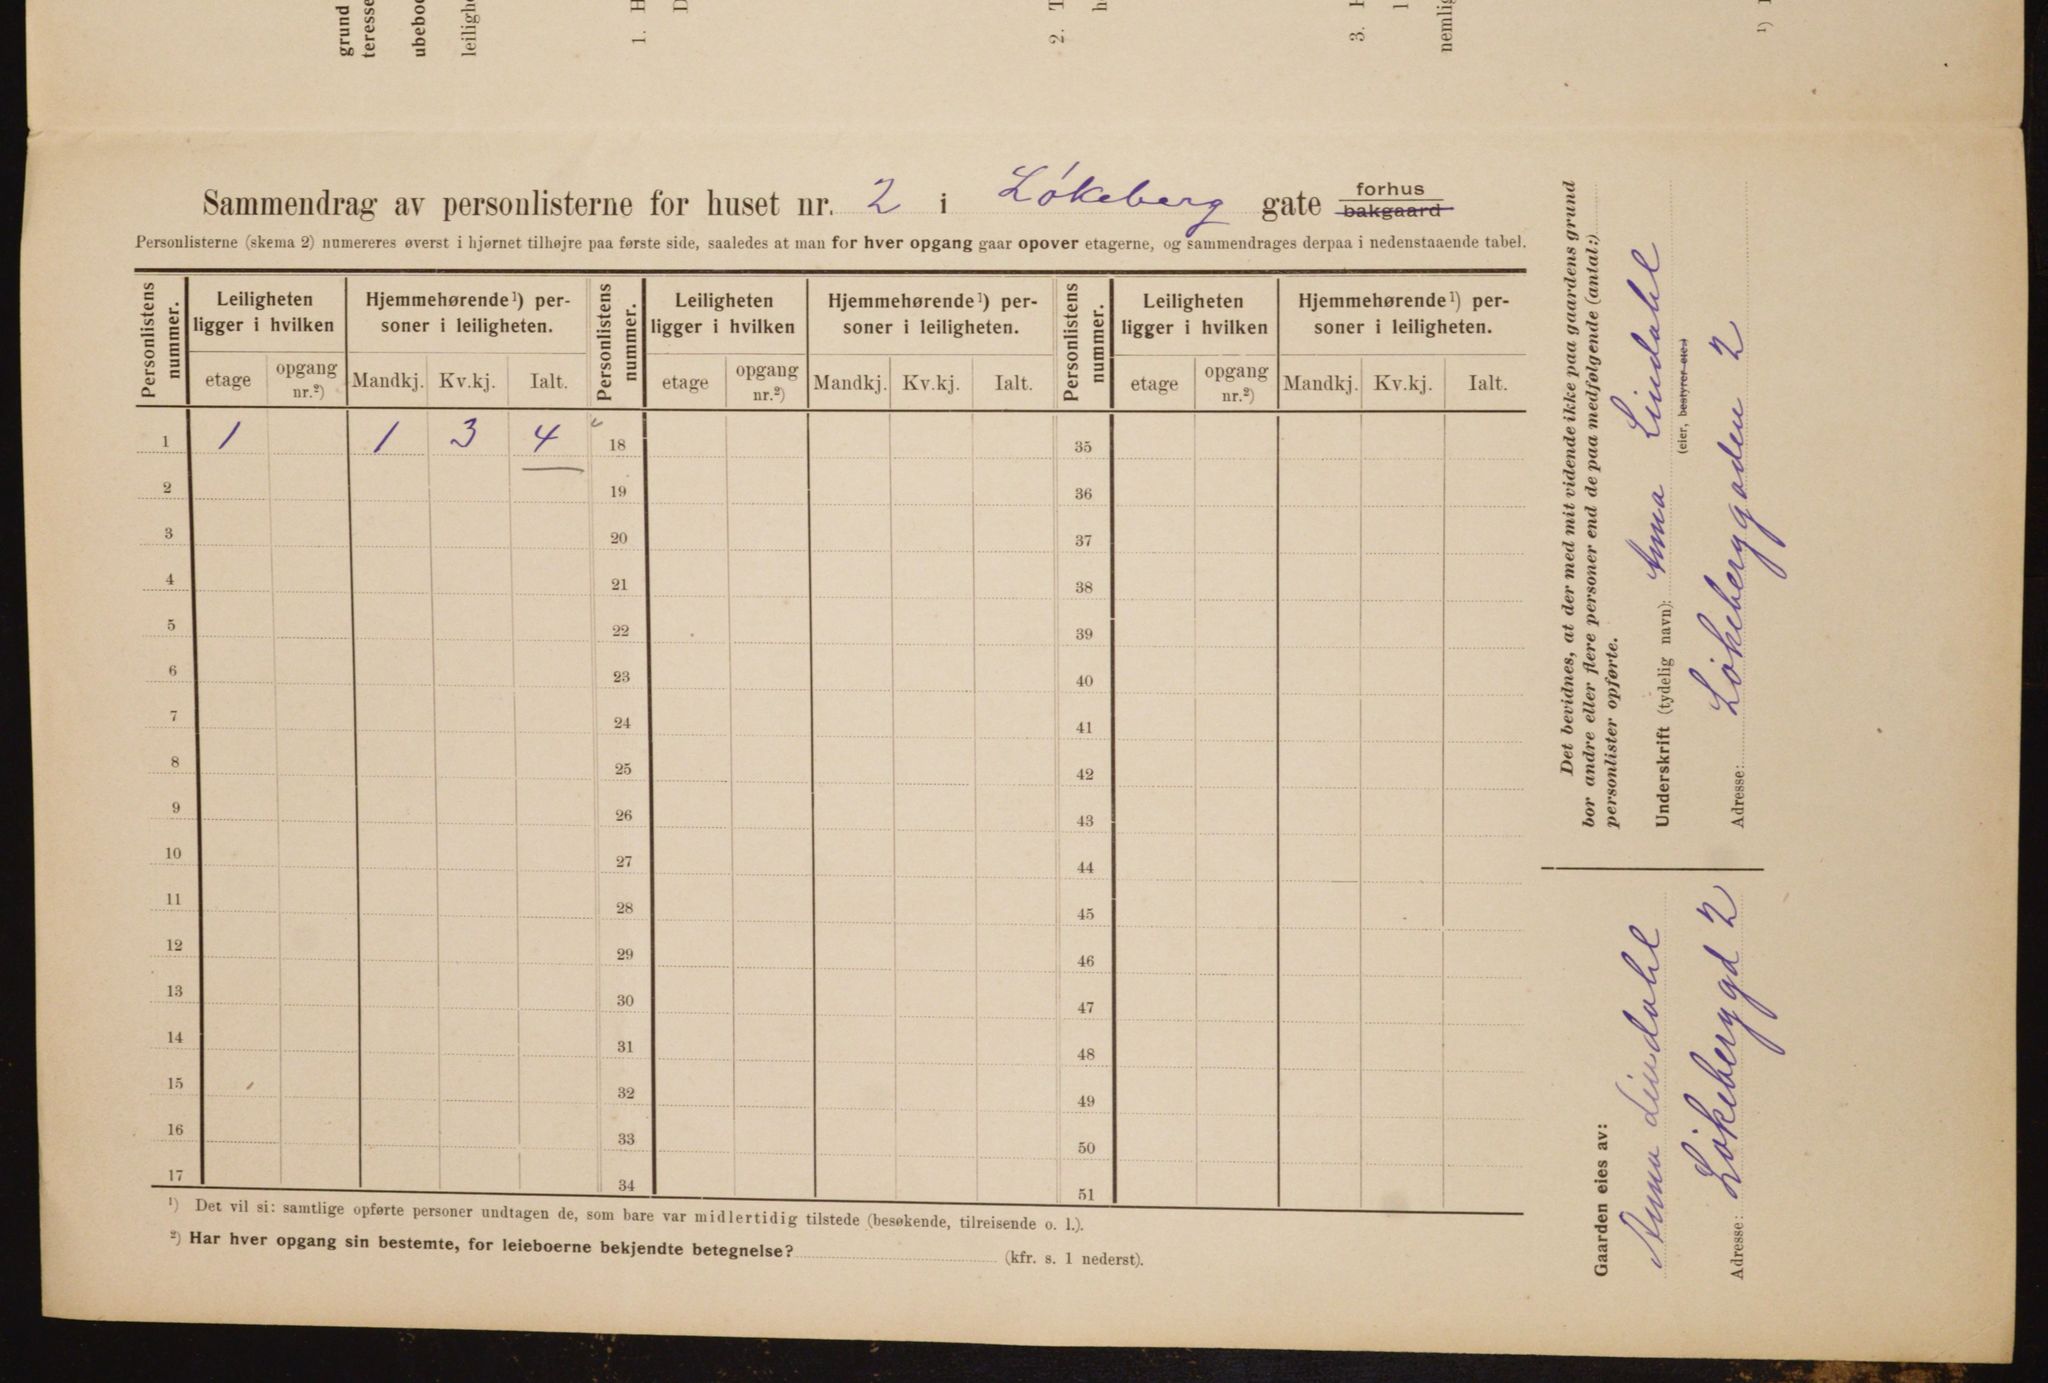 grund
teresse
ubeboe
leilighe
1. H
D
2. T
h
3. H
l
nemlig
¹)
Sammendrag av personlisterne for huset nr. 2 i Løkeberg gate forhus bakgaard
Personlisterne (skema 2) numereres øverst i hjørnet tilhøjre paa første side, saaledes at man for hver opgang gaar opover etagerne, og sammendrages derpaa i nedenstaaende tabel.
Personlistens nummer. Leiligheten ligger i hvilken Hjemmehørende¹) personer i leiligheten. Personlistens nummer. Leiligheten ligger i hvilken Hjemmehørende¹) personer i leiligheten. Personlistens nummer. Leiligheten ligger i hvilken Hjemmehørende¹) personer i leiligheten.
etage opgang nr.²) Mandkj. Kv.kj. Ialt. etage opgang nr.²) Mandkj. Kv.kj. Ialt. etage opgang nr.²) Mandkj. Kv.kj. Ialt.
1 1 1 3 4 18 35
2 19 36
3 20 37
4 21 38
5 22 39
6 23 40
7 24 41
8 25 42
9 26 43
10 27 44
11 28 45
12 29 46
13 30 47
14 31 48
15 32 49
16 33 50
17 34 51
¹) Det vil si: samtlige opførte personer undtagen de, som bare var midlertidig tilstede (besøkende, tilreisende o. l.).
²) Har hver opgang sin bestemte, for leieboerne bekjendte betegnelse? (kfr. s. 1 nederst).
Det bevidnes, at der med mit vidende ikke paa gaardens grund
bor andre eller flere personer end de paa medfølgende (antal:)
personlister opførte.
Underskrift (tydelig navn): Anna Lindahl
(eier, bestyrer etc.)
Adresse: Løkeberggaden 2
Gaarden eies av:
Anna Lindahl
Adresse: Løkeberggd 2